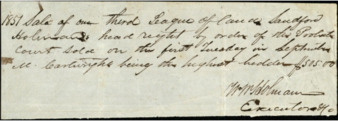 1851 Sale of one third League of Land Sandford
Holman head right by order of the Probate
Court sold on the first Tuesday in
M Cartwright being the highest bidder $505.00
W W Holman
Executor